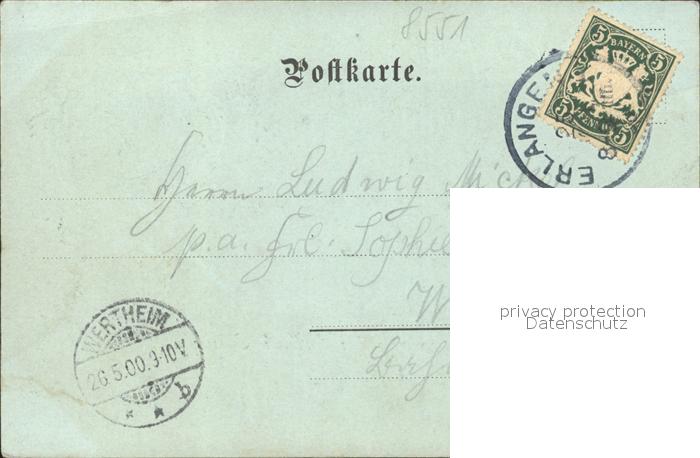 8551
Postkarte.
5 BAYERN 5
5 PFENNIG 5
ERLANGEN
Herrn Ludwig
p. a. Frl. Sophie
W
WERTHEIM
26.5.00.9-10V.
* * b
privacy protection
Datenschutz